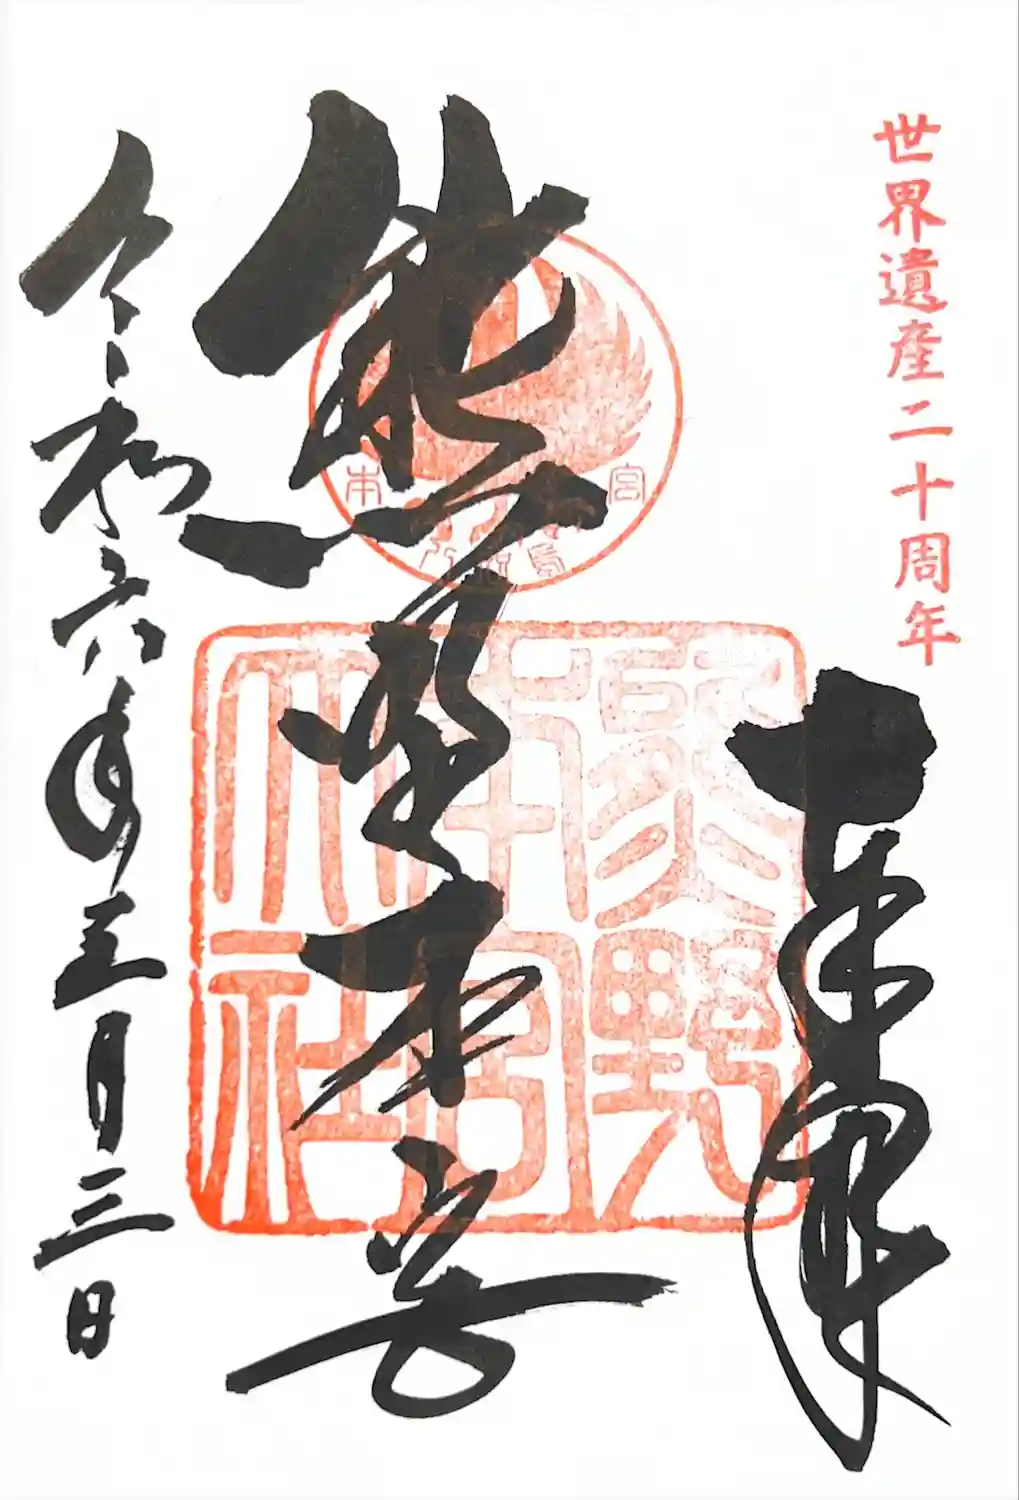 世界遺産二十周年
奉拝
熊野本宮
本宮
八咫烏
熊野本宮大社
令和六年五月三日